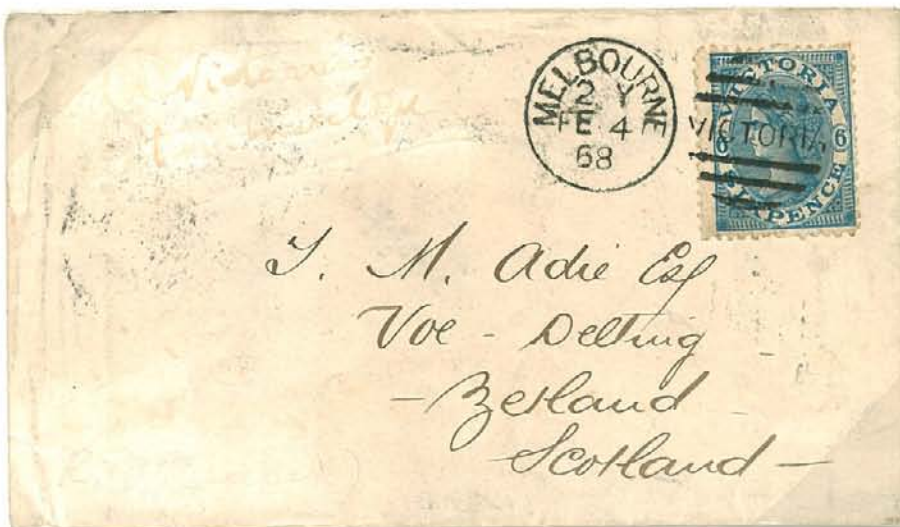 MELBOURNE
2 Y
FE 4
68
VICTORIA
VICTORIA
6 6
SIX PENCE
J. M. Adie Esq
Voe - Delting
- Zetland
Scotland -